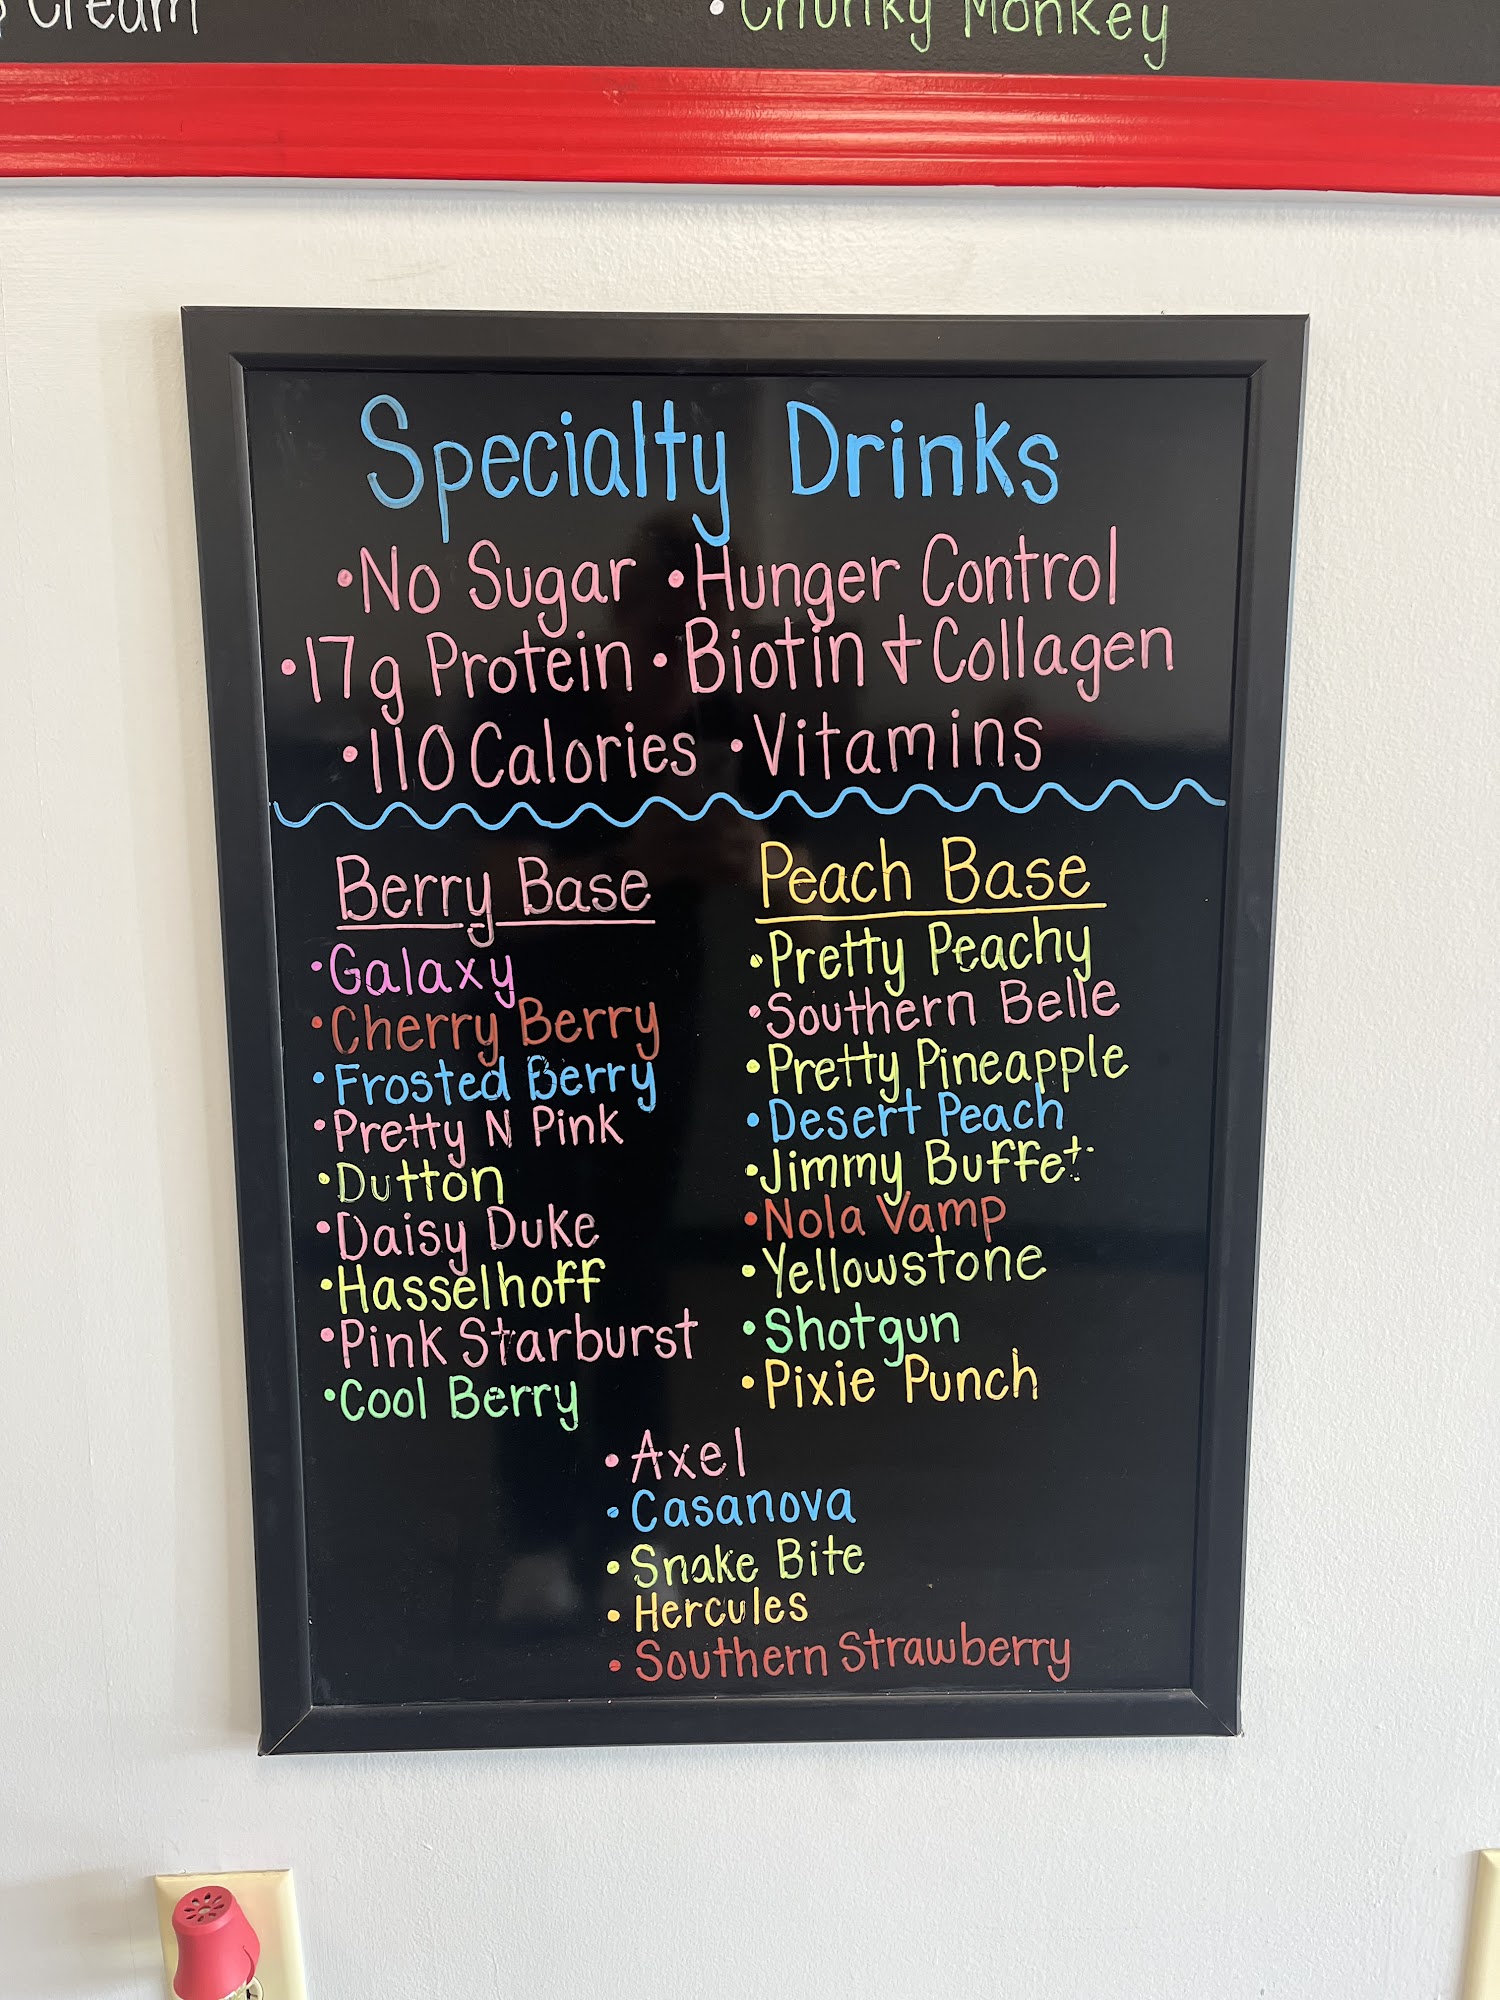 Cream
• Chunky Monkey
Specialty Drinks
•No Sugar •Hunger Control
•17g Protein •Biotin + Collagen
•110 Calories •Vitamins
Berry Base
•Galaxy
•Cherry Berry
•Frosted Berry
•Pretty N Pink
•Dutton
•Daisy Duke
•Hasselhoff
•Pink Starburst
•Cool Berry
Peach Base
•Pretty Peachy
•Southern Belle
•Pretty Pineapple
•Desert Peach
•Jimmy Buffet
•Nola Vamp
•Yellowstone
•Shotgun
•Pixie Punch
•Axel
•Casanova
•Snake Bite
•Hercules
•Southern Strawberry